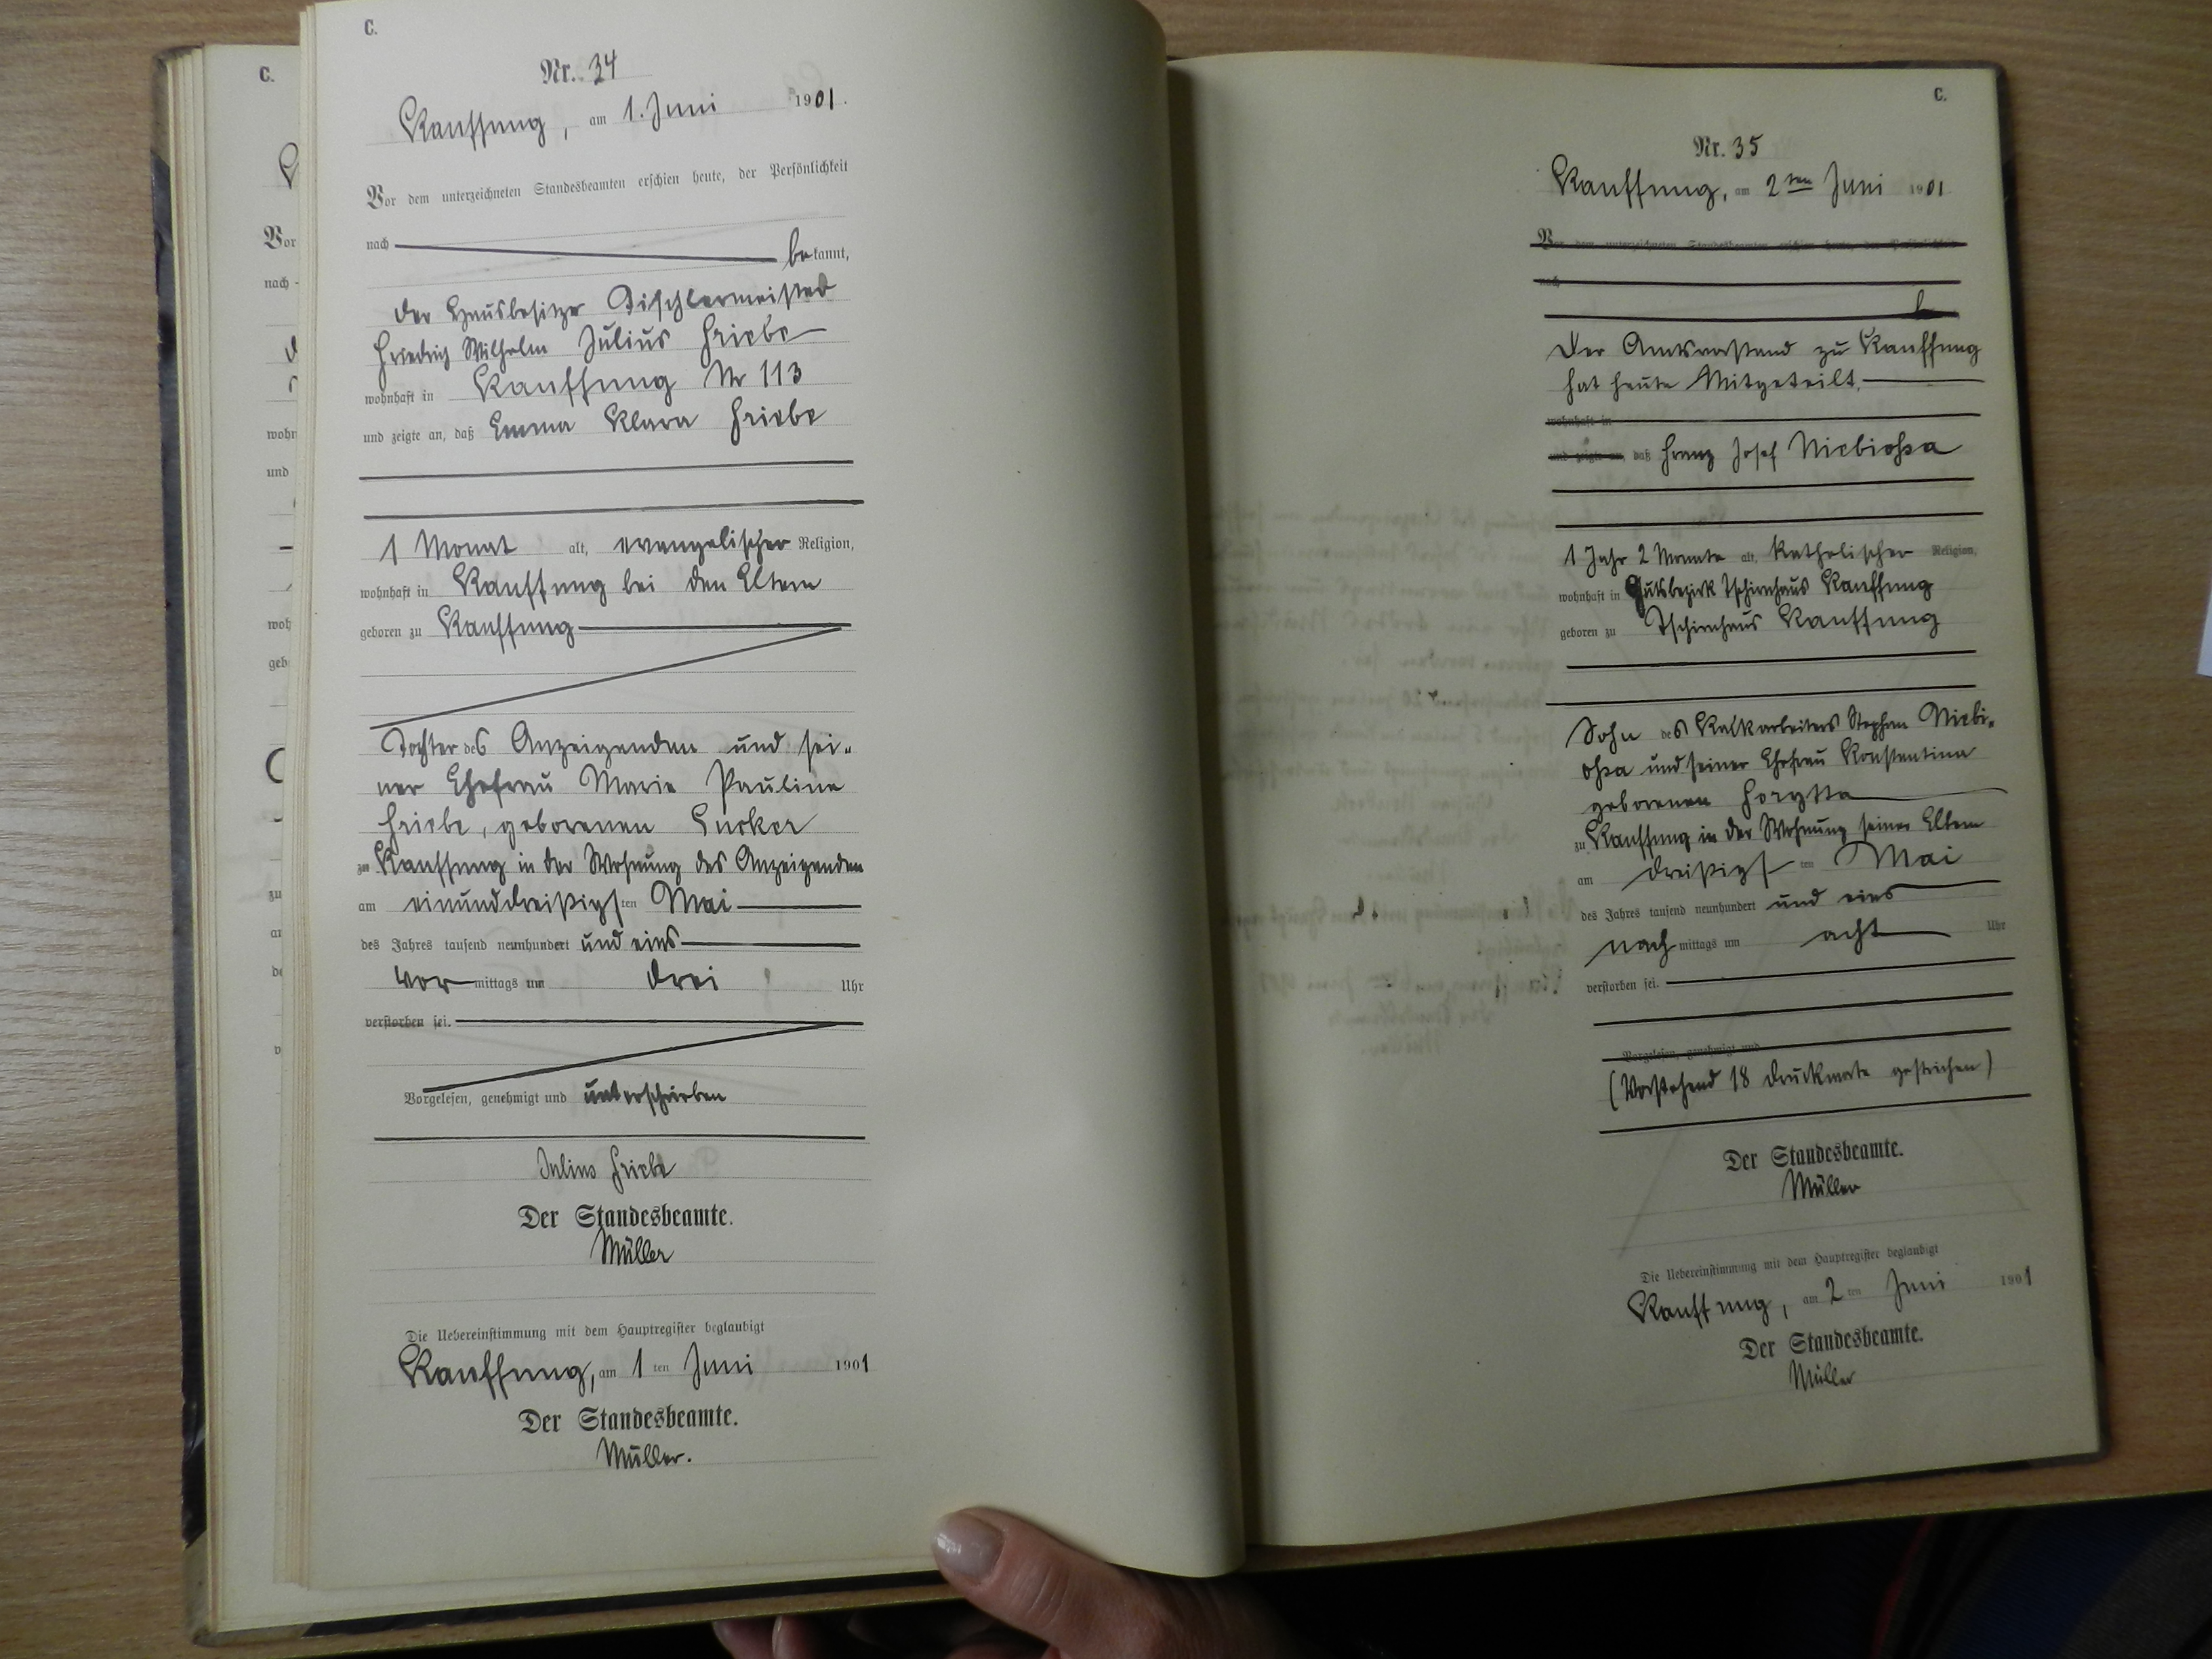 C.
Nr. 34
Kauffung, am 1. Juni 1901.
Vor dem unterzeichneten Standesbeamten erschien heute, der Persönlichkeit
nach
bekannt,
der Hausbesitzer Tischlermeister
Friedrich Wilhelm Julius Friebe
wohnhaft in Kauffung Nr 113
und zeigte an, daß Emma Klara Friebe
1 Monat alt, evangelischer Religion,
wohnhaft in Kauffung bei den Eltern
geboren zu Kauffung
Tochter des Anzeigenden und sei-
ner Ehefrau Marie Pauline
Friebe, geborenen
zu Kauffung in der Wohnung des Anzeigenden
am einunddreißigsten Mai
des Jahres tausend neunhundert und eins
Vormittags um drei Uhr
verstorben sei.
Vorgelesen, genehmigt und unterschrieben
Julius Friebe
Der Standesbeamte.
Müller
Die Uebereinstimmung mit dem Hauptregister beglaubigt
Kauffung, am 1ten Juni 1901
Der Standesbeamte.
Müller.
C.
Nr. 35
Kauffung, am 2ten Juni 1901
Vor dem unterzeichneten Standesbeamten erschien heute, der Persönlichkeit
nach
b
Der Amtsvorstand zu Kauffung
hat heute Mitgeteilt,
wohnhaft in
und zeigte an, daß Franz Josef
1 Jahr 2 Monate alt, katholischer Religion,
wohnhaft in Gutsbezirk Tschirnhaus Kauffung
geboren zu Tschirnhaus Kauffung
Sohn des Kalkarbeiters Stephan
und seiner Ehefrau Konstantina
geborenen
zu Kauffung in der Wohnung seiner Eltern
am dreißigsten Mai
des Jahres tausend neunhundert und eins
nachmittags um acht Uhr
verstorben sei.
Vorgelesen, genehmigt und
(Vorstehend 18 Druckworte gestrichen)
Der Standesbeamte.
Müller
Die Uebereinstimmung mit dem Hauptregister beglaubigt
Kauffung, am 2ten Juni 1901
Der Standesbeamte.
Müller